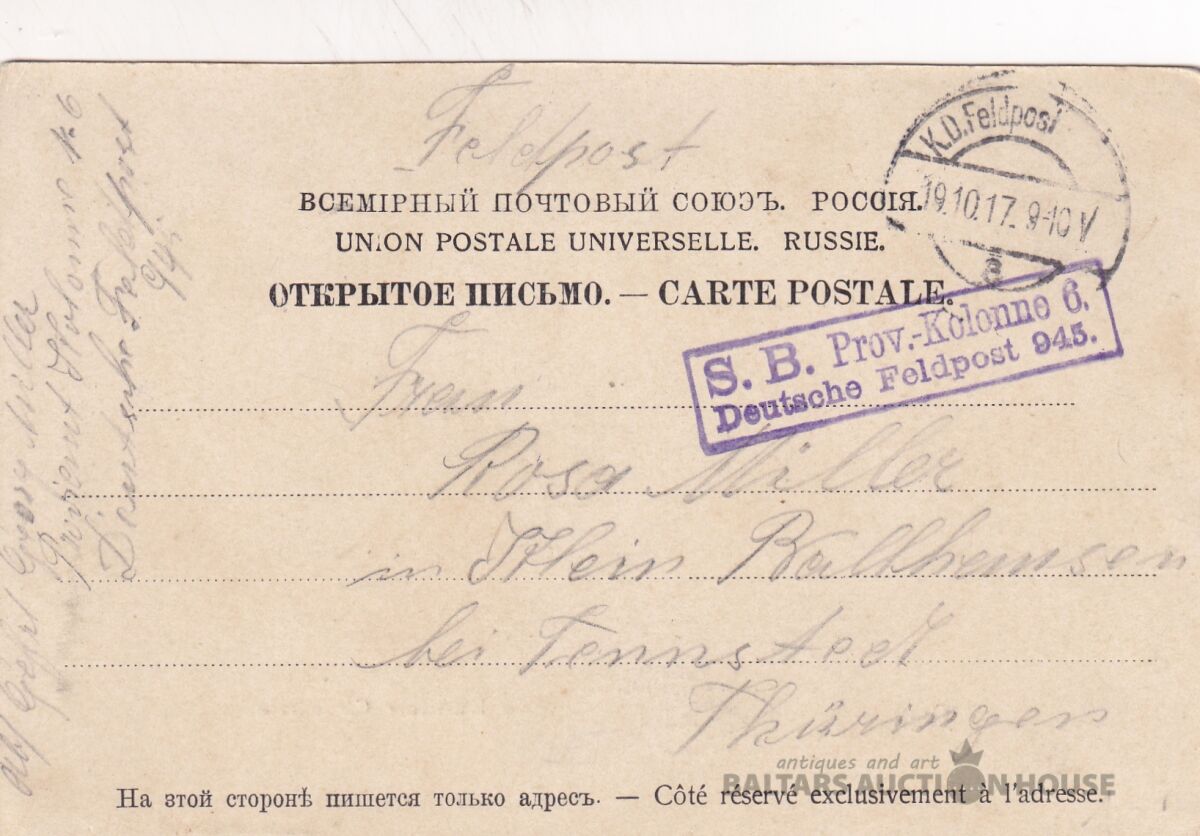 Feldpost
K.D.Feldpost
19.10.17. 9-10 V
a
ВСЕМІРНЫЙ ПОЧТОВЫЙ СОЮЗЪ. РОССІЯ.
UNION POSTALE UNIVERSELLE. RUSSIE.
ОТКРЫТОЕ ПИСЬМО. — CARTE POSTALE.
S. B. Prov.-Kolonne 6.
Deutsche Feldpost 945.
Frau
Rosa Miller
in Klein Ballhausen
bei Tennstedt
Thüringen
Abs Gefrt Georg Miller
Proviant Kolonne No 6
Deutsche Feldpost
945
antiques and art
BALTARS AUCTION HOUSE
На этой сторонѣ пишется только адресъ. — Côté réservé exclusivement à l'adresse.